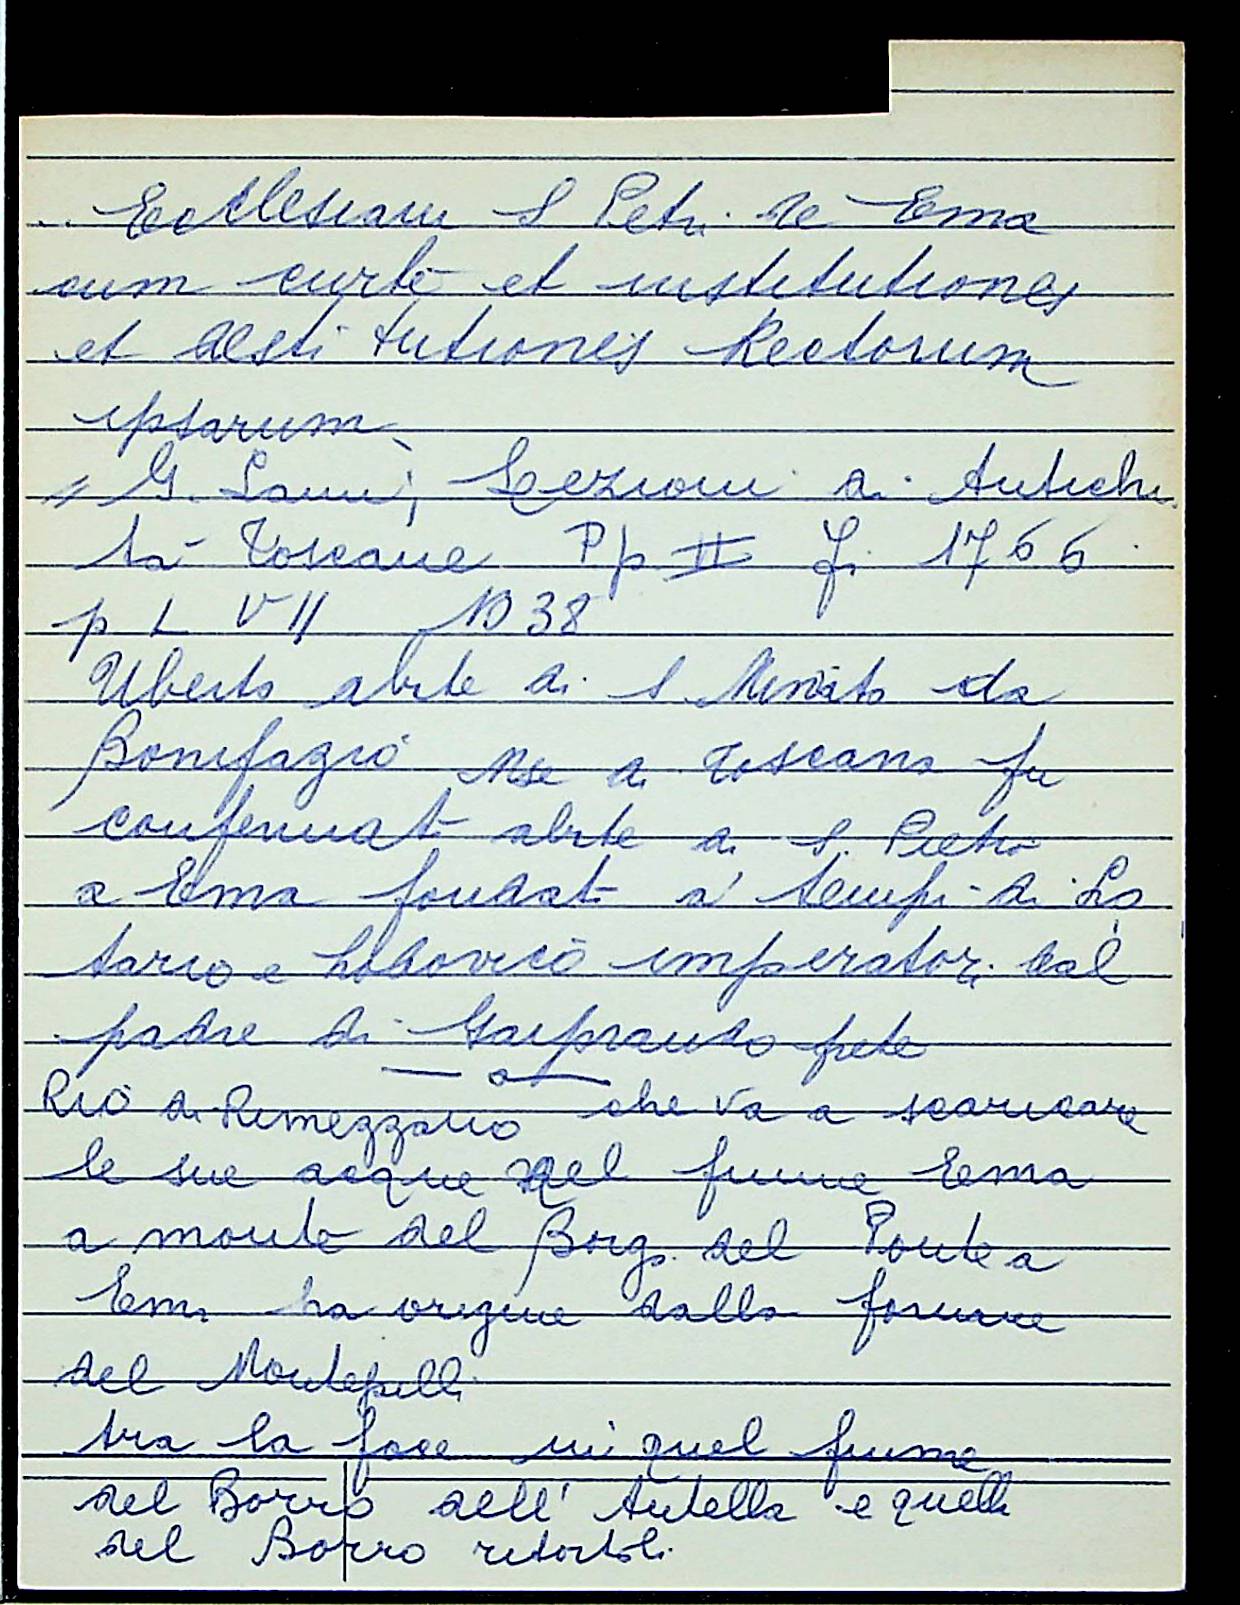 .. Ecclesiam S Petri de Ema
cum curte et institutiones
et destitutiones Rectorum
ipsarum
G. Lami, Lezioni di Antichi
tà Toscane Pp II Fi 1766
p L VII 1038
Uberto abte di S Miniato da
Bonifazio Mse di Toscana fu
confermat abte di S. Pietro
a Ema fondat a' tempi di Lo
tario e Lodovico imperatori dal
padre di prete
Rio di Rimezzano che va a scaricare
le sue acque nel fiume Ema
a monte del Borgo del Ponte a
Ema ha origine dalla
del Montepilli
tra la foce in quel fiume
del Borro dell' Antella e quella
del Borro ritortoli